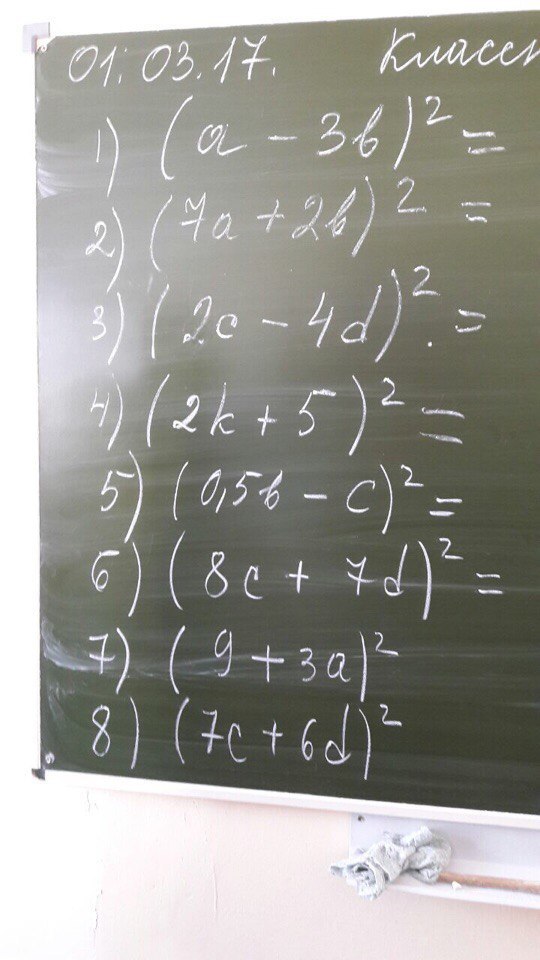 01. 03. 17. Классн
1) (a - 3b)² =
2) (7a + 2b)² =
3) (2c - 4d)². =
4) (2k + 5)² =
5) (0,5b - c)² =
6) (8c + 7d)² =
7) (9 + 3a)²
8) (7c + 6d)²